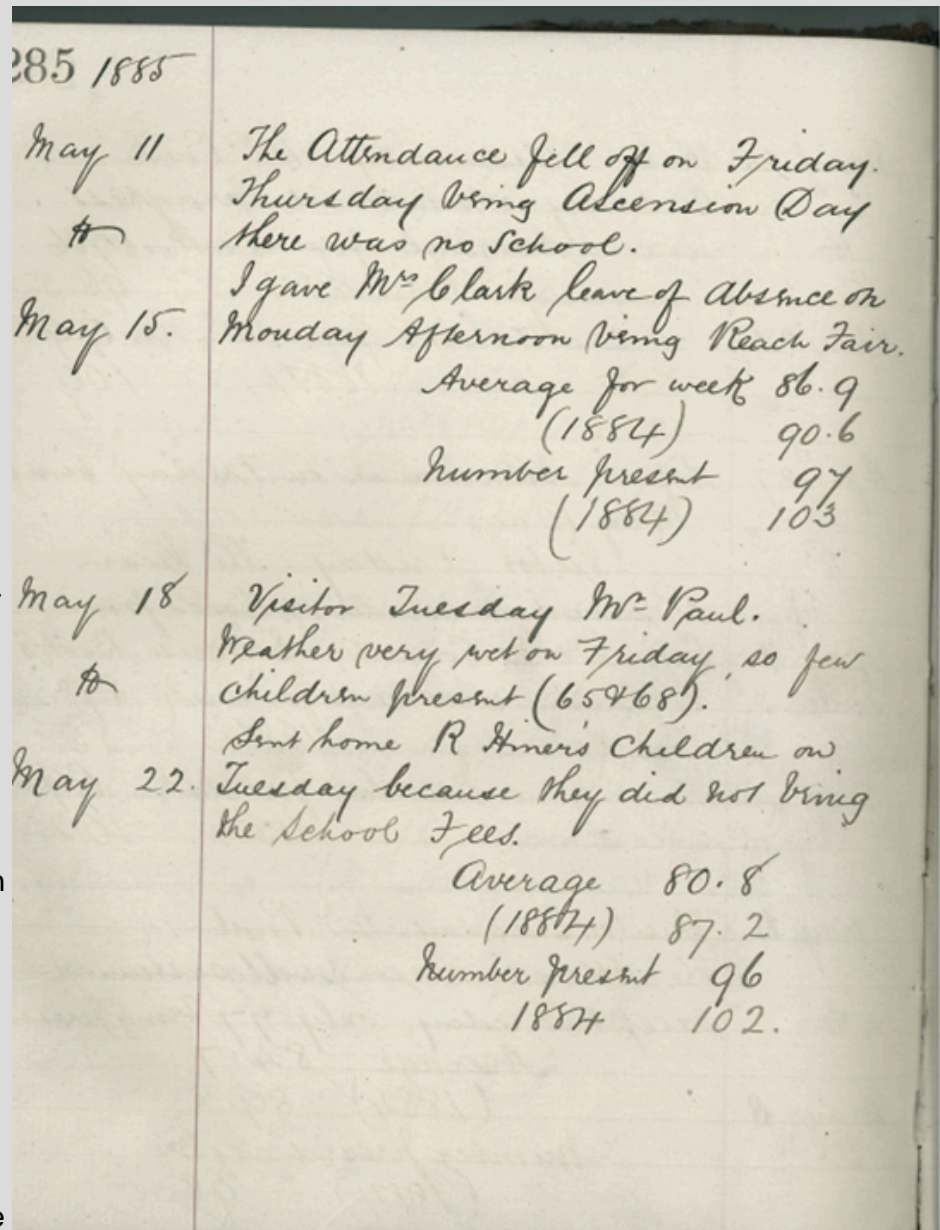 285 1885
May 11 The Attendance fell off on Friday.
Thursday being Ascension Day
to there was no School.
I gave Mrs Clark leave of Absence on
May 15. Monday Afternoon being Reach Fair.
Average for week 86.9
(1884) 90.6
Number present 97
(1884) 103
May 18 Visitor Tuesday Mr Paul.
Weather very wet on Friday, so few
to children present (65 & 68).
Sent home R Hiner's Children on
May 22. Tuesday because they did not bring
the School Fees.
Average 80.8
(1884) 87.2
Number present 96
1884 102.